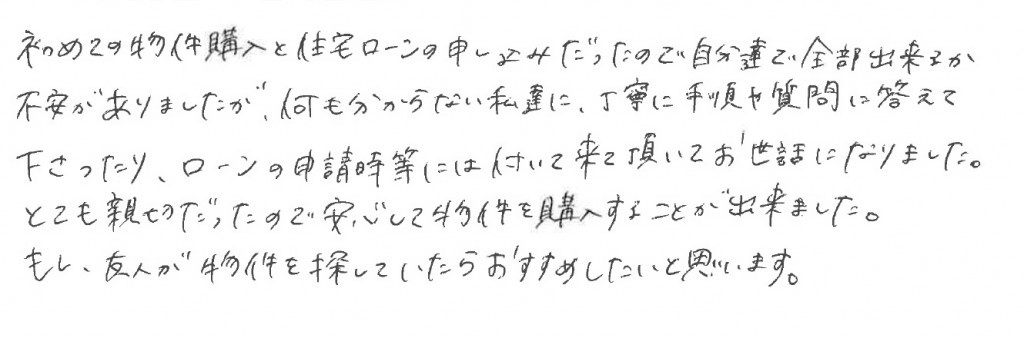 初めての物件購入と住宅ローンの申し込みだったので自分達で全部出来るか
不安がありましたが、何も分からない私達に、丁寧に手順や質問に答えて
下さったり、ローンの申請時等には付いて来て頂いてお世話になりました。
とても親切だったので安心して物件を購入することが出来ました。
もし、友人が物件を探していたらおすすめしたいと思います。